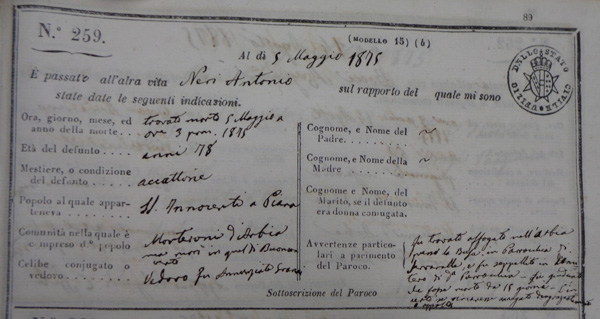 89
N.º 259.
(MODELLO 15) (b)
Al dì 5 Maggio 1875
È passato all'altra vita Neri Antonio sul rapporto del quale mi sono
state date le seguenti indicazioni.
UFFIZIO DELLO STATO CIVILE
Ora, giorno, mese, ed
anno della morte . . .
trovato morto 5 Maggio a
ore 3 pom. 1875
Età del defunto . . . . .
anni 78
Mestiere, o condizione
del defunto . . . . .
accattone
Popolo al quale appar-
teneva . . . . . . .
SS. Innocenti a Piana
Comunità nella quale è
compreso d.º popolo
Monteroni d'Arbia
morì in quel di Buonconvento
Celibe conjugato o
vedovo . . . . . . .
Vedovo fu Annunziata
Cognome, e Nome del
Padre. . . . . . . .
~
Cognome, e Nome della
Madre . . . . . . .
~
Cognome e Nome, del
Marito, se il defunto
era donna conjugata.
Avvertenze partico-
lari a parimento
del Paroco. . . . . .
fu trovato affogato nell'Arbia
presso la Busa, in Parrocchia di
e fu seppellito in
di d.ª Parrocchia - fu
morto da 15 giorni -
Sottoscrizione del Paroco